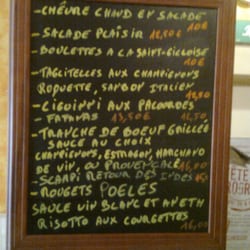 -CHÈVRE CHAUD EN SALADE
10€
-SALADE PLAISIR 12,50€
-BOULETTES A LA SAINT-GILLOISE
10€
-TAGLITELLES AUX CHAMPIGNONS
ROQUETTE, JAMBON ITALIEN
12,50
-LIGUINI AUX PALOURDES
-FAJITAS 13,50€ 12,50
-TRANCHE DE BOEUF GRILLÉE
SAUCE AU CHOIX
CHAMPIGNONS, ESTRAGON, MARCHAND
DE VIN, OU PROVENCALE 16,00
-SCAMPI RETOUR DES INDES 15,-
-ROUGETS POELES
SAUCE VIN BLANC ET ANETH
RISOTTO AUX COURGETTES
16,00